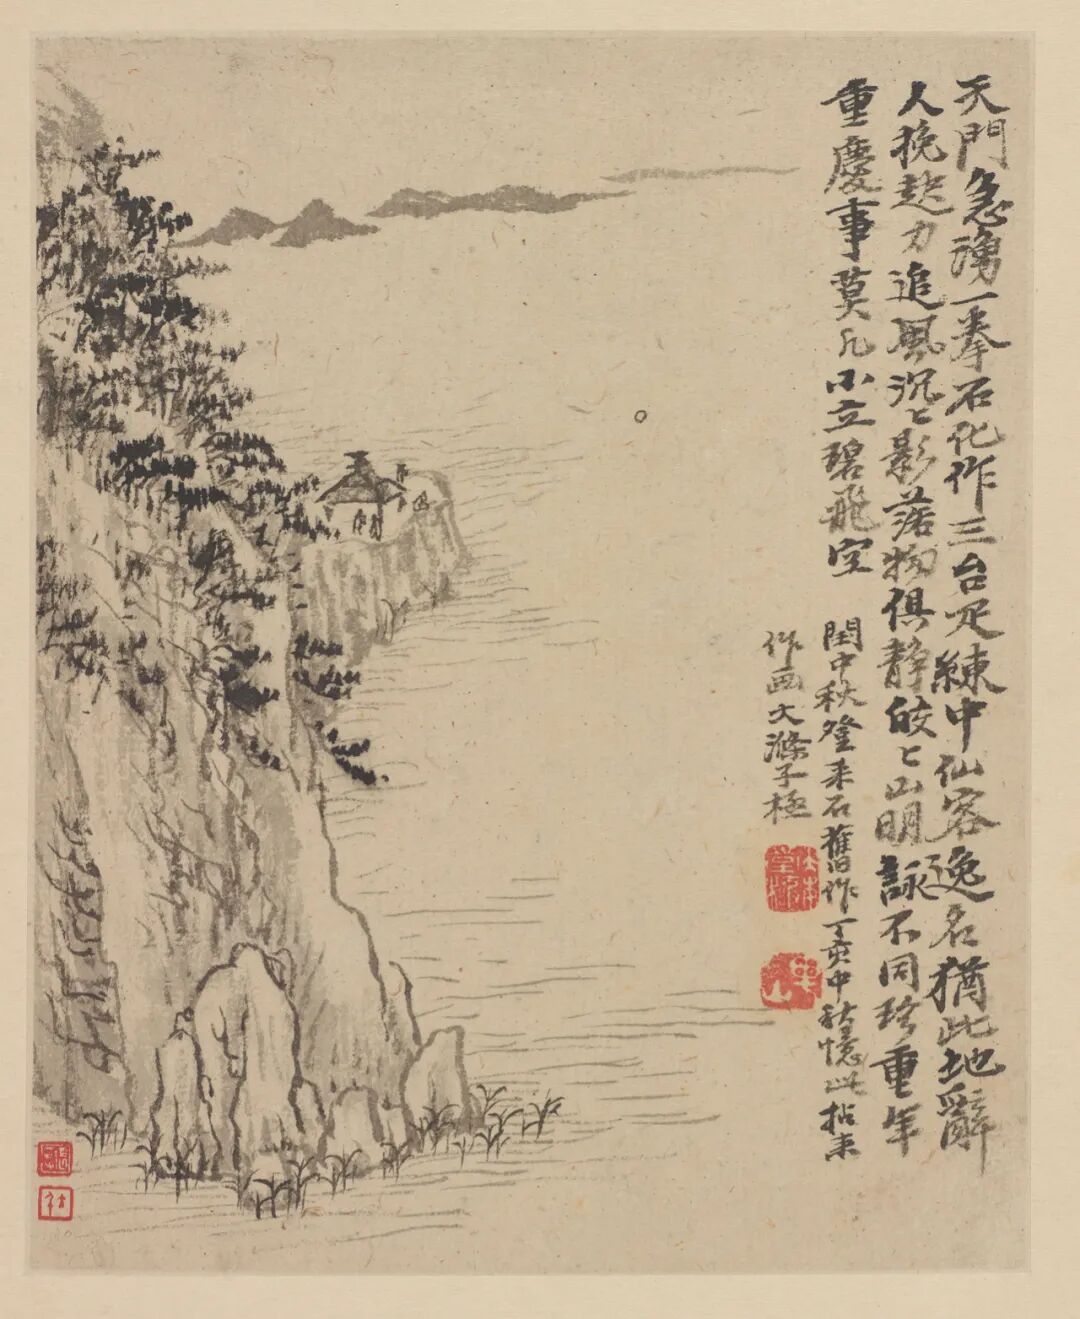 天門急湧一拳石化作三台足練中仙客逸名猶此地辭
人挽起力追風沉〻影落物俱静皎〻山明詠不同珎重年
重慶事莫凡小立碧飛空
閏中秋登采石舊作丁亥中秋憶此拈來
作畫大滌子極